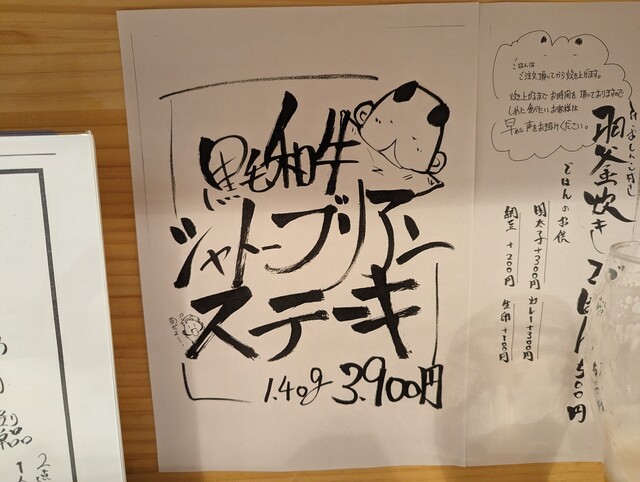 黒毛和牛
シャトーブリアン
ステーキ
140g 3.900円
ごはんは
ご注文頂いてから炊き上げます。
炊き上がるまでお時間を頂いておりますので
しめに食べたいお客様は
早めに声をお掛けください。
羽釜炊きごはん 500円
ごはんのお供
明太子+300円
カレー+300円
納豆+200円
生卵+100円
2点